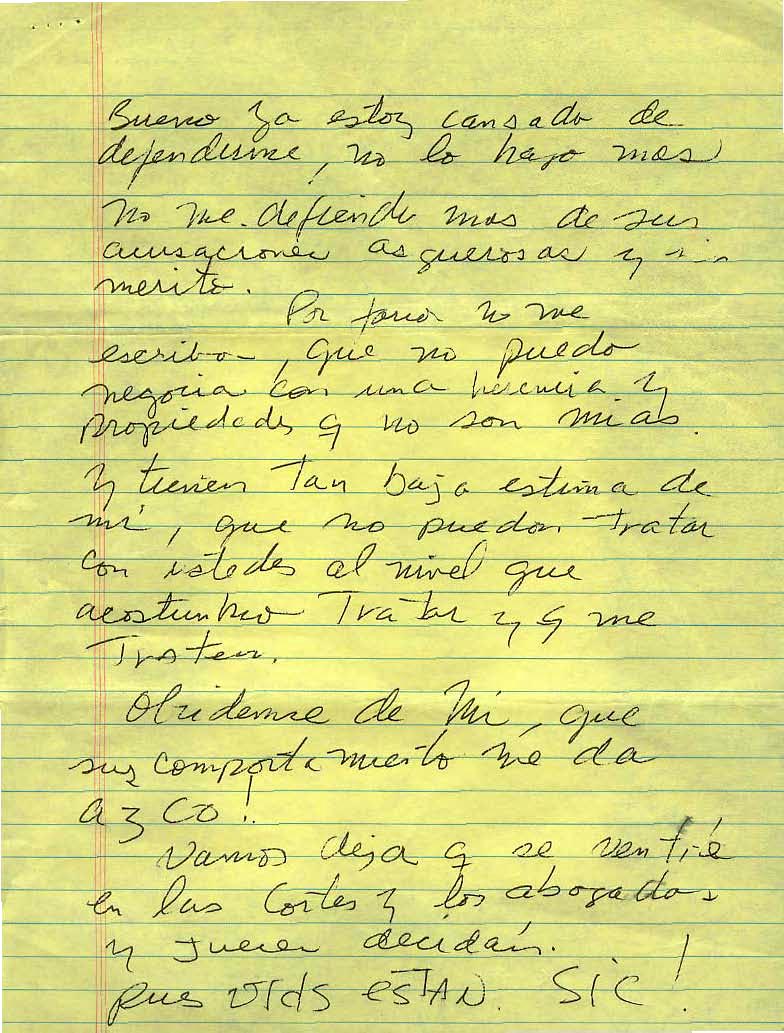 Bueno ya estoy cansado de
defenderme, no lo hago mas
no me defiendo mas de sus
acusaciones asquerosas y sin
merito.
Por favor no me
escriba, que no puedo
negocia con una herencia y
propiedades q no son mias.
Y tienen tan baja estima de
mi, que no puedo tratar
con ustedes al nivel que
acostunbro Tratar y q me
Traten.
Olvidemse de Mi, que
sus comportamiento me da
azco!
Vamos deja q se ventile
en las Cortes y los abogados
y Jueces decidan.
pues Vtds ESTAN. SIC!